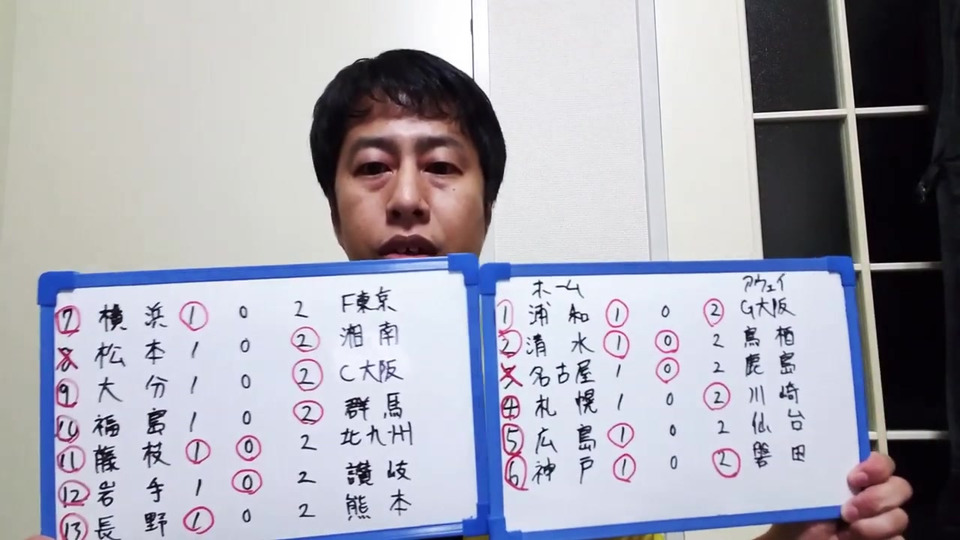 ホーム アウェイ
1 浦和 1 0 2 G大阪
2 清水 1 0 2 鳥栖
3 名古屋 1 0 2 鹿島
4 札幌 1 0 2 川崎
5 広島 1 0 2 仙台
6 神戸 1 0 2 磐田
7 横浜 1 0 2 F東京
8 松本 1 0 2 湘南
9 大分 1 0 2 C大阪
10 福島 1 0 2 群馬
11 藤枝 1 0 2 北九州
12 岩手 1 0 2 讃岐
13 長野 1 0 2 熊本